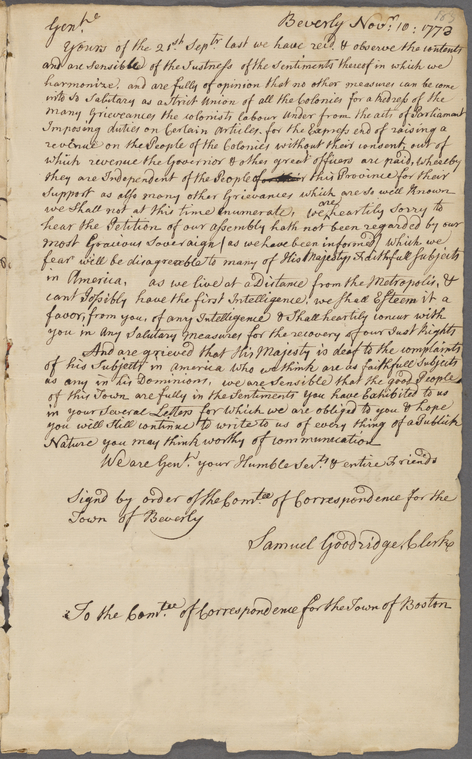 Beverly Novr. 10: 1773
Gentn.
Yours of the 21st Septr. last we have recd. & observe the contents
and are sensible of the Justness of the Sentiments thereof in which we
harmonize, and are fully of opinion that no other measures can be come
into so Salutary as a Strict Union of all the Colonies for a redress of the
many Grieveances the colonists labour Under from the acts of Parliament
Imposing duties on Certain Articles for the Express end of raising a
revenue on the People of the Colonies without their consent, out of
which revenue the Governor & other great officers are paid, whereby
they are Independent of the People of this Province for their
Support as also many other Grievances which are so well Known
we Shall not at this time Enumerate, we are heartily sorry to
hear the Petition of our assembly hath not been regarded by our
most Gracious Soveraign (as we have been informed) which we
fear will be disagreeable to many of His Majestys Faithfull Subjects
in America, as we live at a Distance from the Metropolis, &
cant Possibly have the first Intelligence, we shall Esteem it a
favor, from you, of any Intelligence & Shall heartily concur with
you in any Salutary measures for the recovery of our Just Rights
And are grieved that His Majesty is deaf to the complaints
of his Subjects in America who we think are as faithfull Subjects
as any in his Dominions, we are Sensible that the good People
of this Town are fully in the Sentiments you have Exhibited to us
in your Several Letters for which we are obliged to you & hope
you will still continue to write to us of every thing of a Publick
Nature you may think worthy of communication
We are Gentn. your Humble Servts. & entire Friends
Signd by order of the Comtee of Correspondence for the
Town of Beverly
Samuel Goodridge, Clerk
To the Comtee of Correspondence for the Town of Boston